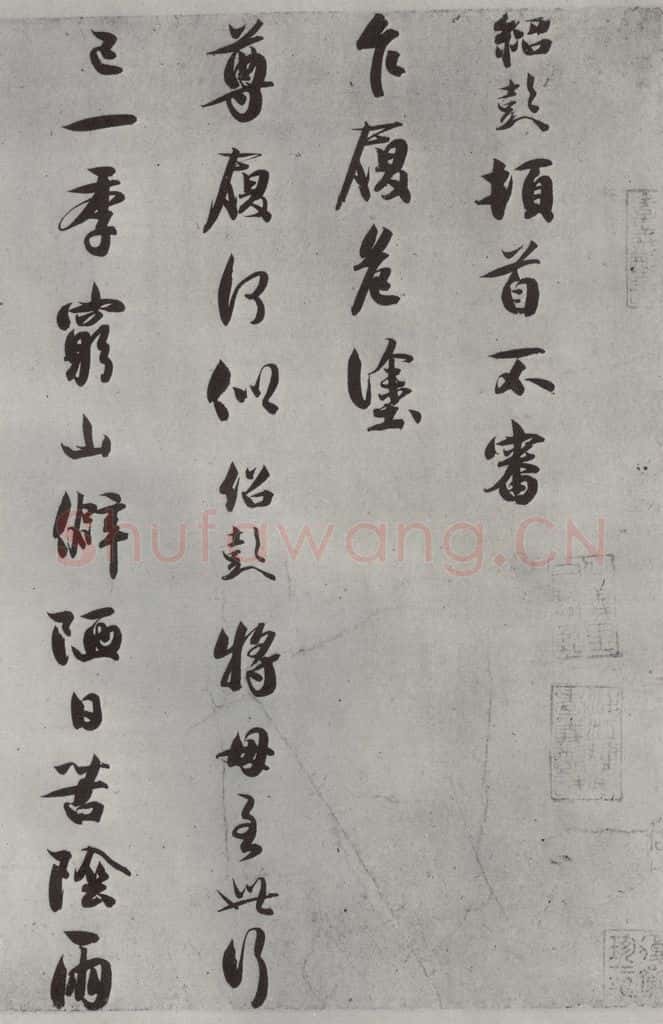 紹彭頓首不審
乍履危塗
尊履何似紹彭將母至此行
已一季窮山僻陋日苦陰雨
Shufawang.CN